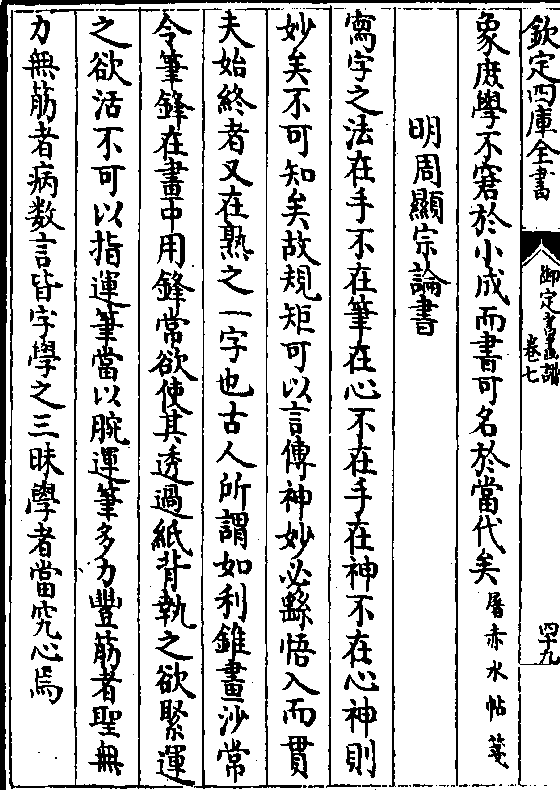 欽定四庫全書
御定書畫譜
卷七
四十九
象度學不窘於小成而書可名於當代矣屠赤水帖箋
明周顯宗論書
寫字之法在手不在筆在心不在手在神不在心神則
妙矣不可知矣故規矩可以言傳神妙必繇悟入而貫
夫始終者又在熟之一字也古人所謂如利錐畫沙常
令筆鋒在畫中用鋒常欲使其透過紙背執之欲緊運
之欲活不可以指運筆當以腕運筆多力豐筋者聖無
力無筋者病数言皆字學之三昧學者當究心焉